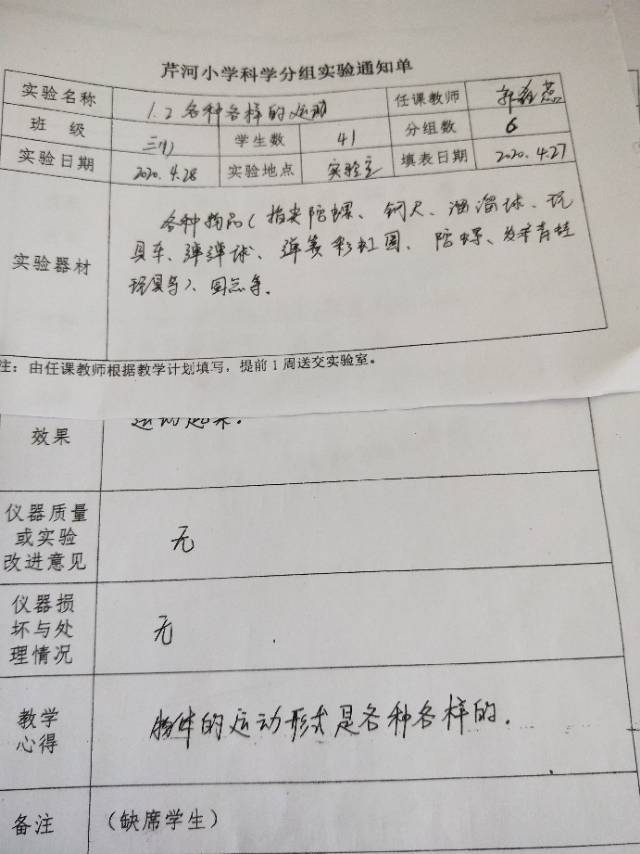 芹河小学科学分组实验通知单
实验名称 1.2 各种各样的运动 任课教师 郭
班 级 三(1) 学生数 41 分组数 6
实验日期 2020.4.28 实验地点 实验室 填表日期 2020.4.27
各种物品(指尖陀螺、钢尺、溜溜球、玩
实验器材 具车、弹弹球、弹簧彩虹圈、陀螺、发条青蛙
玩具等)、圆点等。
注:由任课教师根据教学计划填写,提前1周送交实验室。
运动起来。
效果
仪器质量
或实验 无
改进意见
仪器损
坏与处 无
理情况
教学 物体的运动形式是各种各样的.
心得
备注 (缺席学生)